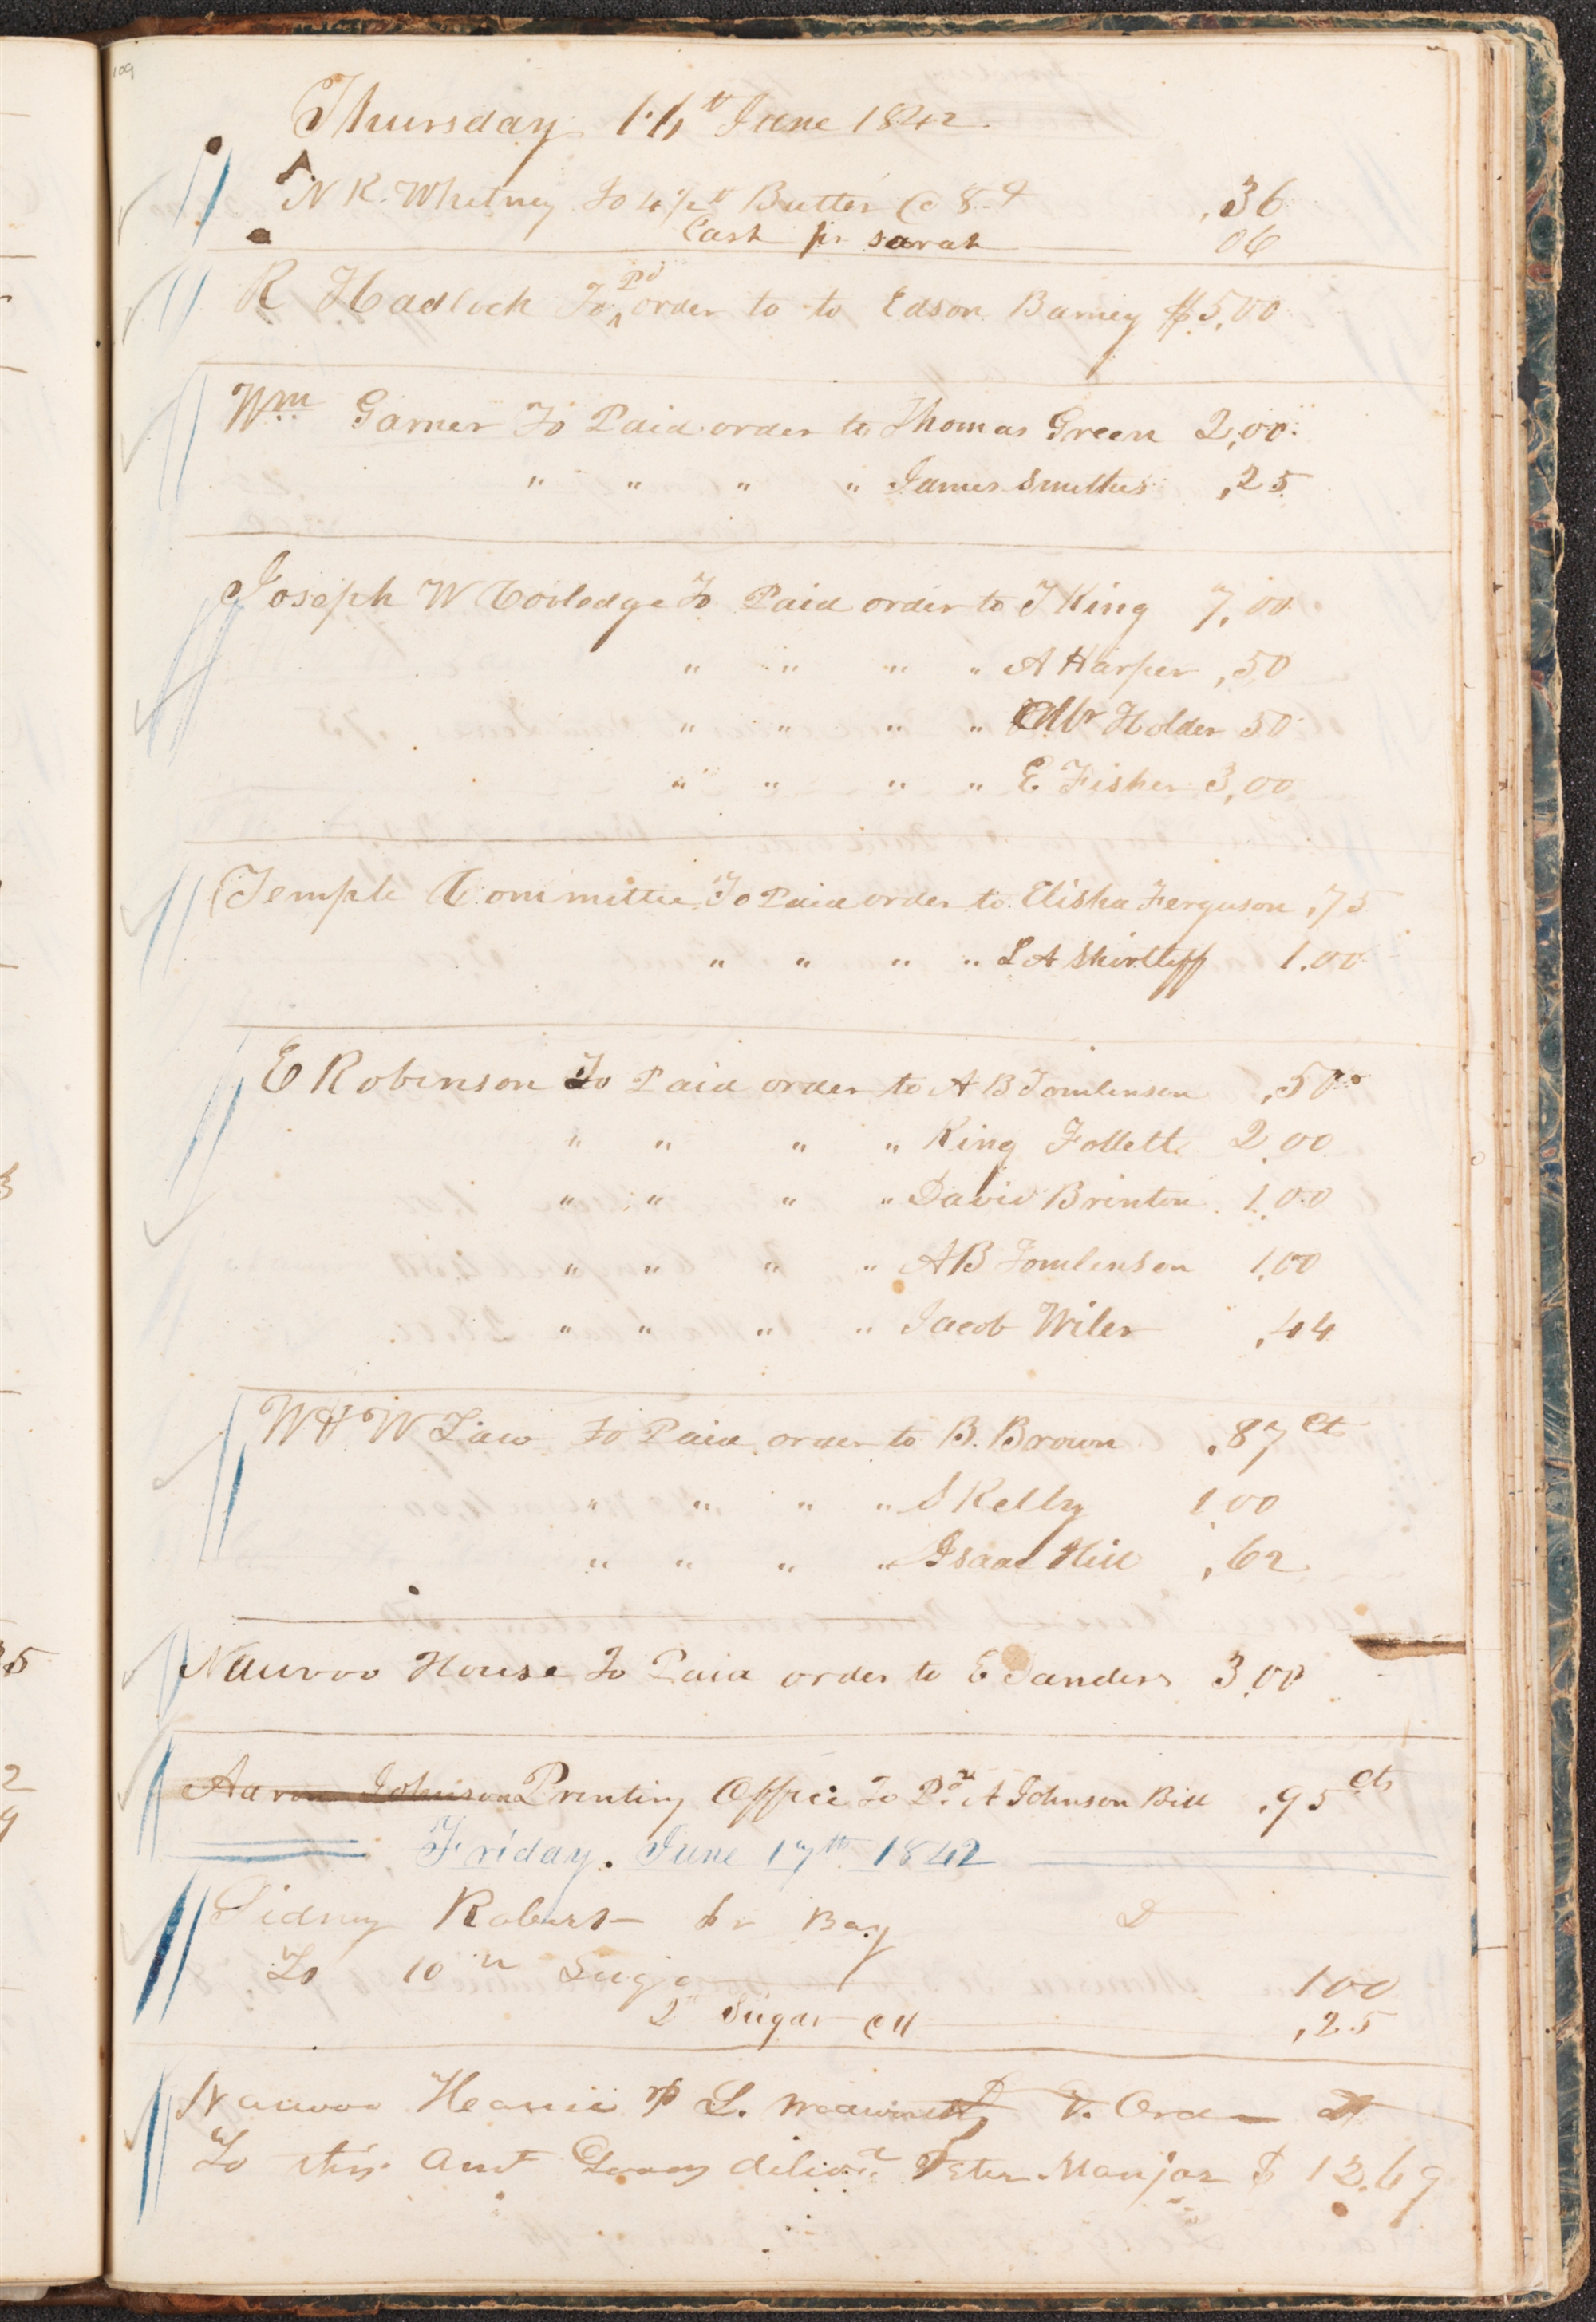 109
Thursday 16th June 1842.
N K. Whitney To 4 1/2 lb Butter @ 8 .36
Cash pr sarah 06
R Hadlock To Pd order to to Edson Barney $5,00
Wm Garner To Paid order to Thomas Green 2,00
" " " " James Smithies ,25
Joseph W Cooledge To Paid order to J King 7,00
" " " " A Harper ,50
" " " " Holder 50
" " " " E. Fisher 3,00
Temple Committee To Paid order to Elisha Ferguson .75
" " " " L A Shirtliff 1.00
E Robinson To Paid order to A B Tomlinson ,50
" " " " King Follett 2.00
" " " " David Brinton 1.00
" " " " A B Tomlinson 1,00
" " " " Jacob Wiler ,44
W & W Law To Paid order to B. Brown .87 Cts
" " " " S Kelly 1.00
" " " " Isaac Hill ,62
Nauvoo House To Paid order to E Sanders 3.00
Aaron Johnson Printing Office To Pd A Johnson Bill .95 cts
Friday. June 17th 1842
Sidney Roberts pr Boy D
To 10 lb 1 00
2 lb Sugar ,25
Nauvoo House pr L. Order
To this Amt deliverd Peter Manjar $ 12.69